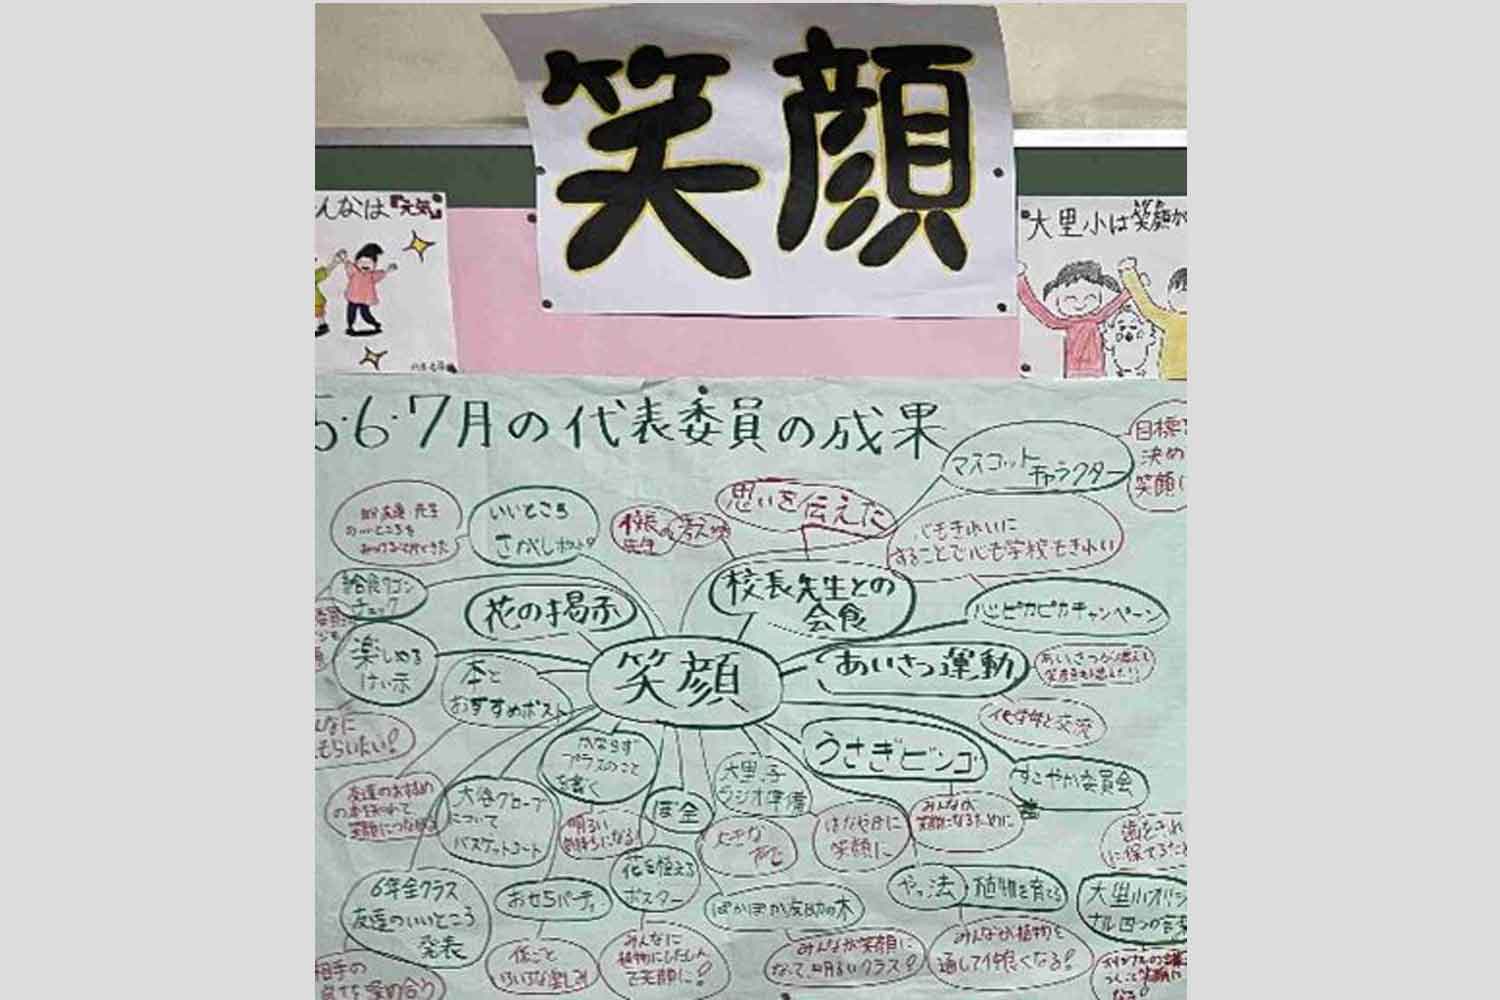 笑顔
んなは『元気』
大里小は笑顔が
5・6・7月の代表委員の成果
マスコット
キャラクター
目標
決め
笑顔に
思いを伝えた
校長の考え
先生
いいところ
さがし
心もきれいに
することで心も学校もきれい
給食ワゴン
チェック
花の掲示
校長先生との
会食
心ピカピカキャンペーン
楽しめる
けい示
本と
おすすめポスト
笑顔
あいさつ運動
あいさつが増えて
他学年と交流
んなに
もらいたい!
かならず
プラスのこと
を書く
うさぎビンゴ
すこやか委員会
友達のおすすめ
の本を知れて
笑顔につながる
大谷グローブ
について
バスケットコート
明るい
気持ちになる!
ぼ金
大里子
ラジオ準備
大きな
声で
はなやかに
笑顔に
みんなが
笑顔になるために
歯をきれ
に保てるた
6年全クラス
友達のいいところ
発表
おせち
花を植える
ポスター
ぽかぽか
の木
やっ法
植物を育てる
大里小オリジ
ナル四つの言葉
相手の
深め合う
係ごと
いろいろな楽しみ
みんなに
植物にしたしん
で笑顔に!
みんなが笑顔に
なって明るいクラス!
みんなが植物を
通して仲良くなる!